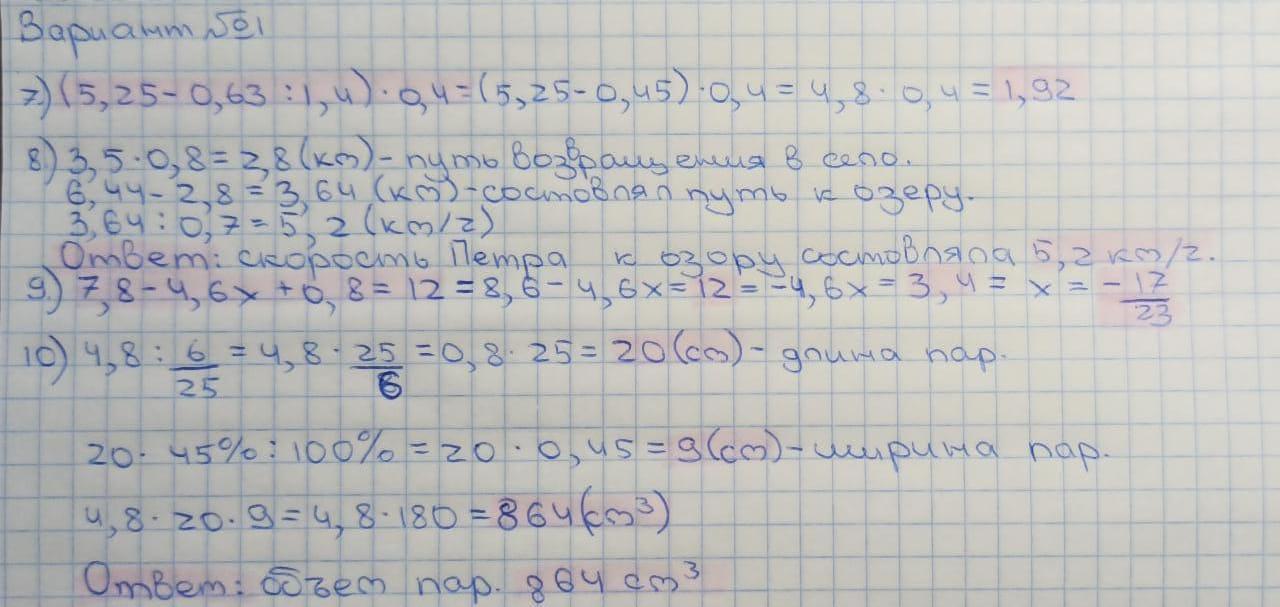 Вариант №1
7.) (5,25 - 0,63 : 1,4) · 0,4 = (5,25 - 0,45) · 0,4 = 4,8 · 0,4 = 1,92
8) 3,5 · 0,8 = 2,8 (км) - путь возвращения в село.
6,44 - 2,8 = 3,64 (км) - состовлял путь к озеру.
3,64 : 0,7 = 5,2 (км/г)
Ответ: скорость Петра к озору состовляла 5,2 км/г.
9.) 7,8 - 4,6x + 0,8 = 12 = 8,6 - 4,6x = 12 = -4,6x = 3,4 = x = -17/23
10) 4,8 : 6/25 = 4,8 · 25/6 = 0,8 · 25 = 20 (см) - длина пар.
20 · 45% : 100% = 20 · 0,45 = 9 (см) - ширина пар.
4,8 · 20 · 9 = 4,8 · 180 = 864 (см³)
Ответ: обэем пар. 864 см³